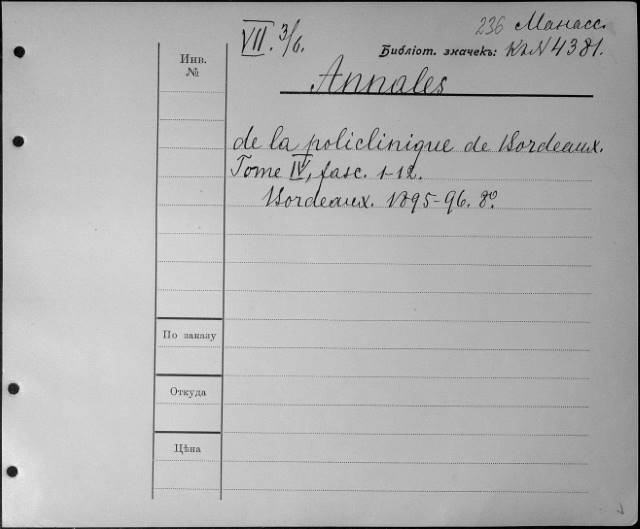 236 Манасс.
VII. 3/6.
Библіот. значекъ: К2N4381.
Инв.
№
Annales
de la policlinique de Bordeaux.
Tome IV, fasc. 1-12.
Bordeaux. 1895-96. 8º.
По заказу
Откуда
Цѣна